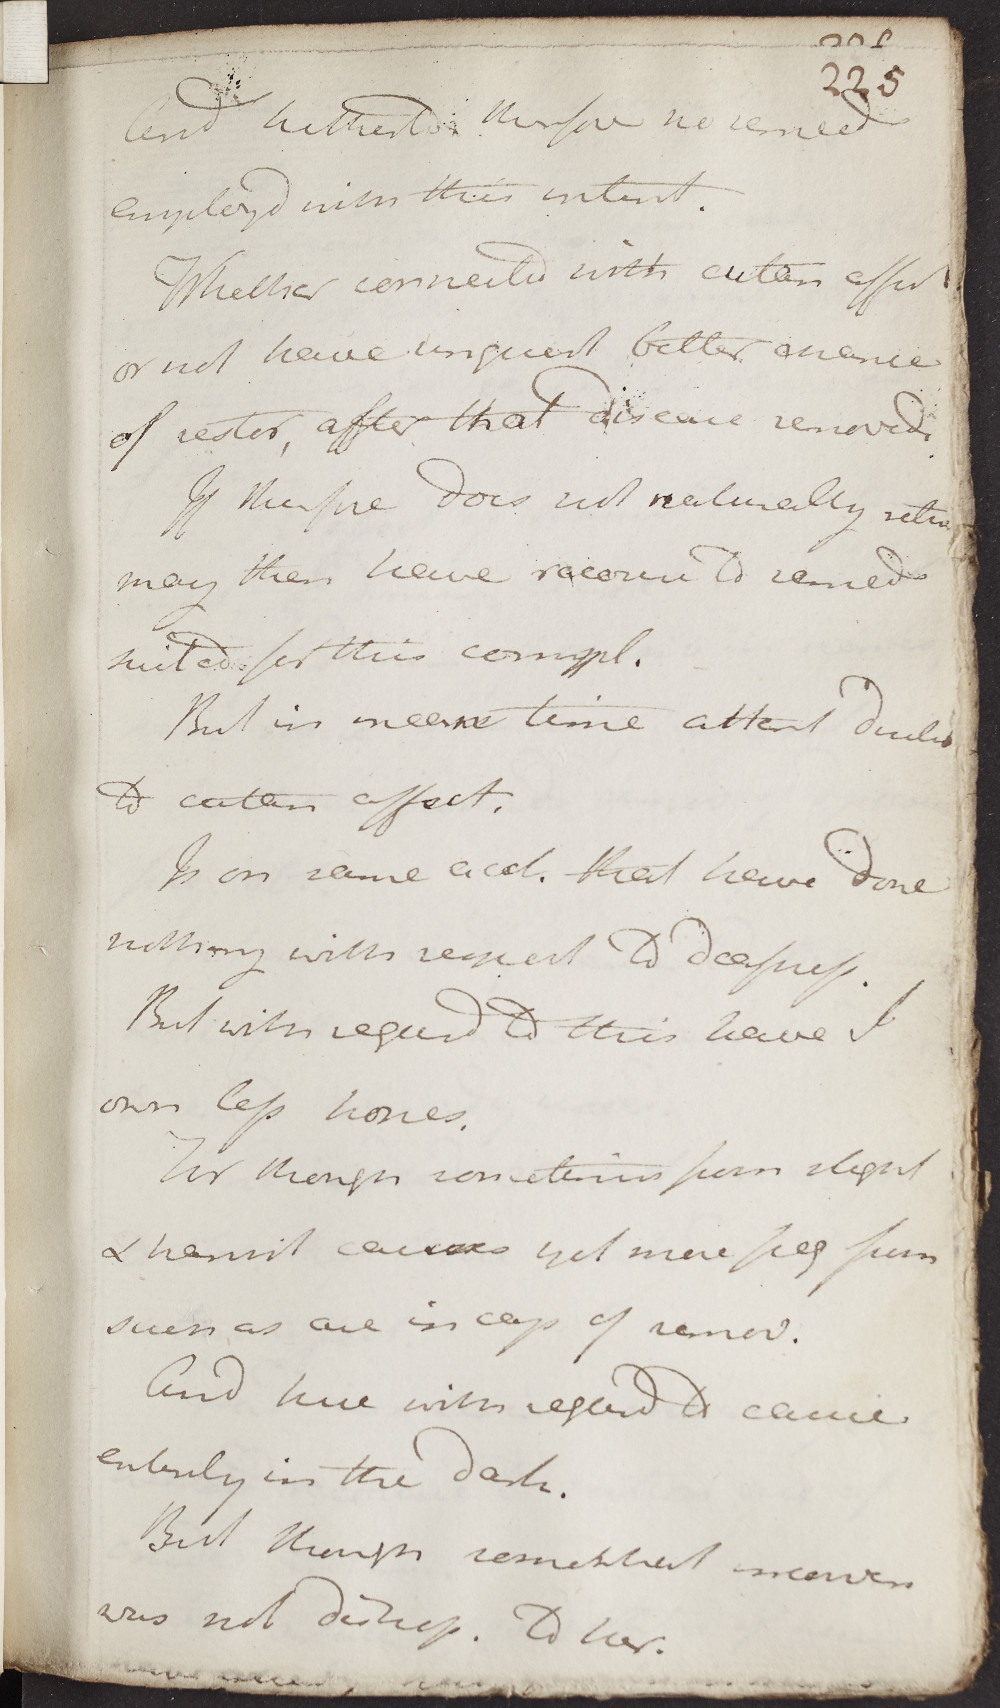 225
And hitherto therfore no remed
employd with this intent.
Whether connected with cutan affect
or not have unquest better chance
of restor, after that disease removed.
If therfore does not naturally retu
may then have recourse to remeds
suited for this compl.
But in meane time attent directed
to cutan affect.
Is on same acct. that have done
nothing with respect to deafness.
But with regard to this have I
own less hopes.
For though sometimes from slight
& transit causes yet more freq from
such as are incap of remov.
And here with regard to cause
entirely in the dark.
But though somewhat uncertn
was not distress. to her.